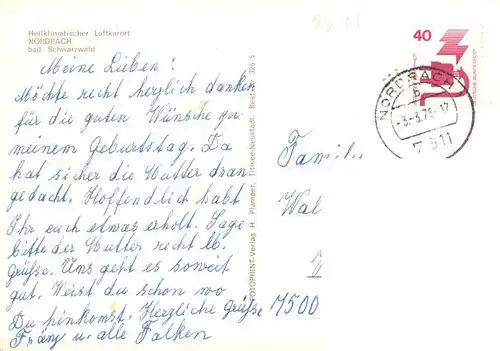 Heilklimatischer Luftkurort
NORDRACH
bad. Schwarzwald
Meine Lieben!
Möchte recht herzlich danken
für die guten Wünsche zu
meinem Geburtstag. Da
hat sicher die Mutter dran
gedacht. Hoffendlich habt
Ihr euch etwas erholt. Sage
bitte der Mutter recht lb.
Grüße. Uns geht es soweit
gut. Weist du schon wo
Du hinkomst. Herzliche Grüße
u. alle Falken
FOTOPRINT-Verlag H. Plamper, Titisee-Neustadt, Best.
40
NORDRACH
b
-3.-3.75-17
7611
Famili
Wal
7500